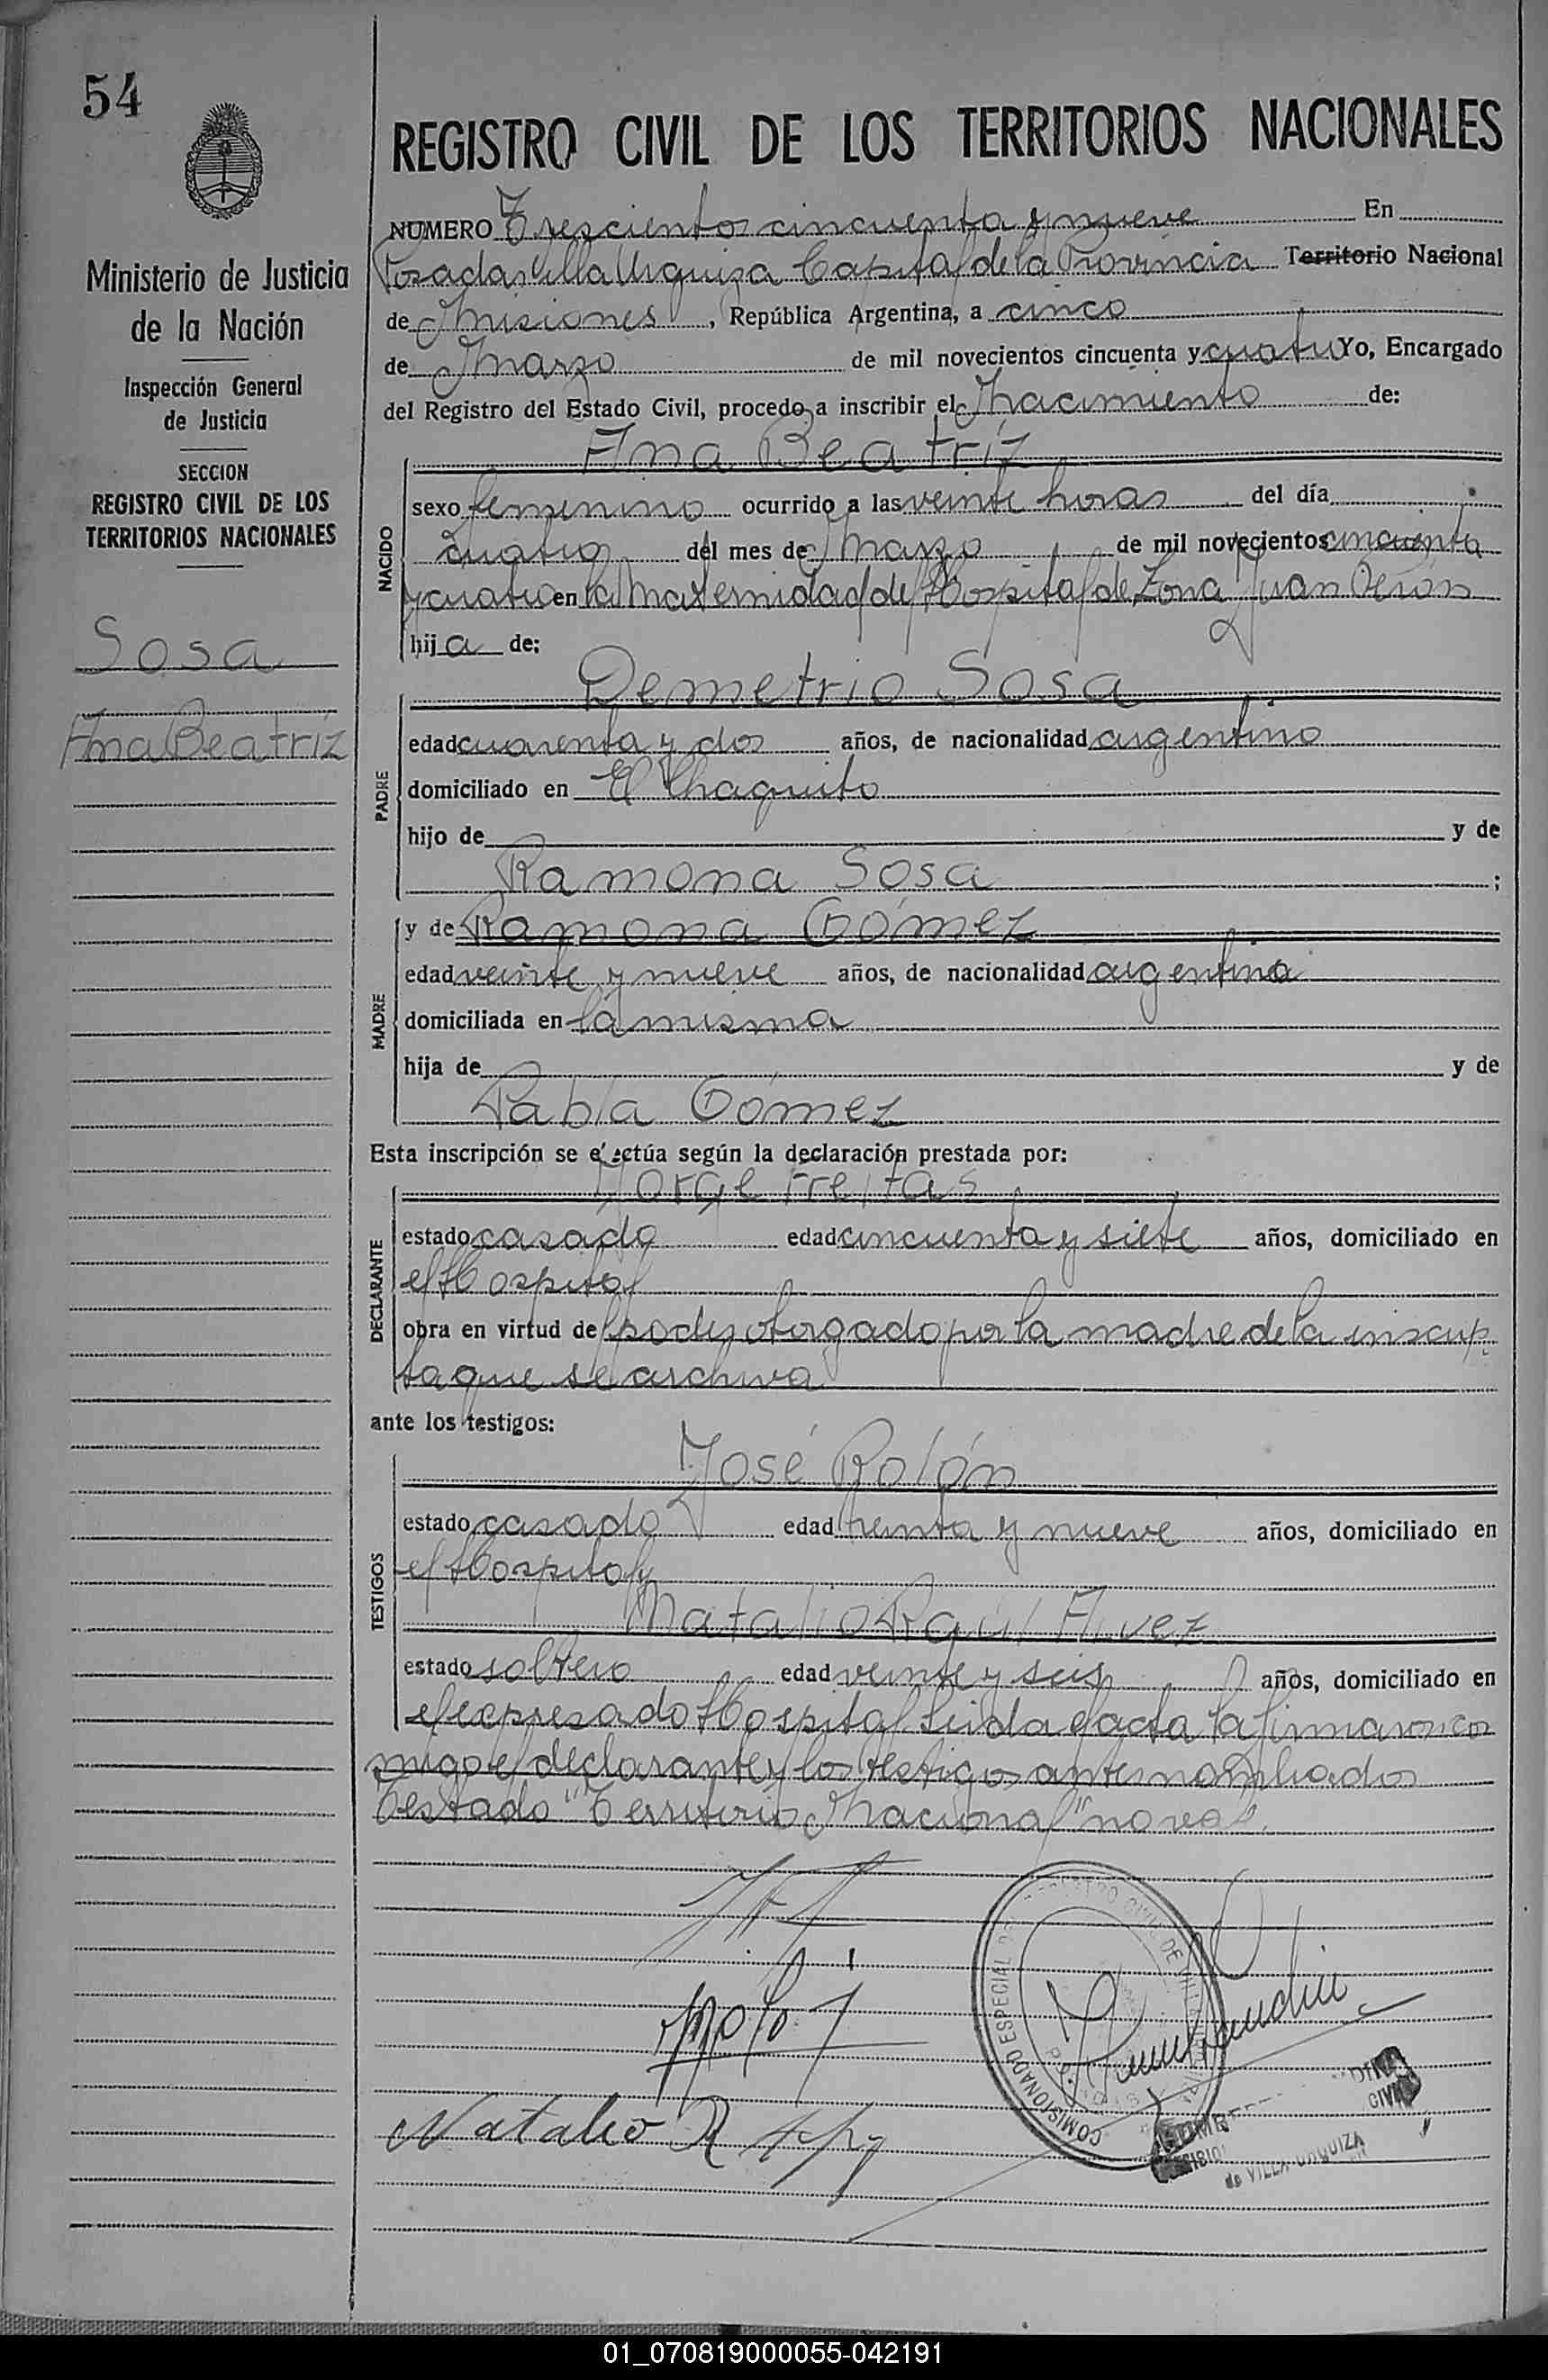 54
REGISTRO CIVIL DE LOS TERRITORIOS NACIONALES
Ministerio de Justicia
de la Nación
Inspección General
de Justicia
SECCION
REGISTRO CIVIL DE LOS
TERRITORIOS NACIONALES
Sosa
Ana Beatríz
NUMERO Trescientos cincuenta y nueve En
Posadas Villa Urquiza Capital de la Provincia Territorio Nacional
de Misiones, República Argentina, a cinco
de Marzo de mil novecientos cincuenta y cuatro Yo, Encargado
del Registro del Estado Civil, procedo a inscribir el Nacimiento de:
NACIDO
Ana Beatríz
sexo femenino ocurrido a las veinte horas del día
cuatro del mes de Marzo de mil novecientos cincuenta
y cuatro en la Maternidad del Hospital de Zona Juan Perón
hija de:
PADRE
Demetrio Sosa
edad cuarenta y dos años, de nacionalidad argentino
domiciliado en El Chaquito
hijo de y de
Ramona Sosa ;
MADRE
y de Ramona Gómez
edad veinte y nueve años, de nacionalidad argentina
domiciliada en la misma
hija de y de
Pabla Gómez
Esta inscripción se efectúa según la declaración prestada por:
DECLARANTE
Jorge Freitas
estado casado edad cincuenta y siete años, domiciliado en
el Hospital
obra en virtud del poder otorgado por la madre de la inscrip
ta que se archiva
ante los testigos:
TESTIGOS
José Rolón
estado casado edad treinta y nueve años, domiciliado en
el Hospital y
Natalio Raúl Alvez
estado soltero edad veinte y seis años, domiciliado en
el expresado Hospital Leida el acta la firmaron con
migo el declarante y los testigos antes nombrados
Testado "Territorio Nacional" no vale.
COMISIONADO ESPECIAL DEL REGISTRO CIVIL DE VILLA URQUIZA
Natalio R
de VILLA URQUIZA
01_070819000055-042191